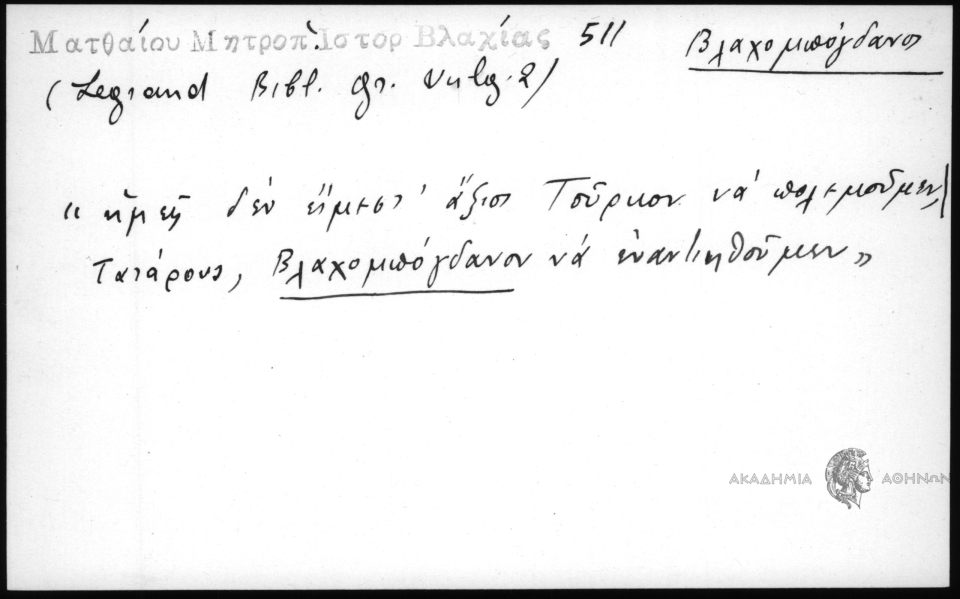 Ματθαίου Μητροπ. Ἱστορ Βλαχίας 511 Βλαχομπόγδανοι
(Legrand Bibl. gr. Vulg. 2)
« ἡμεῖς δὲν εἴμεστ' ἄξιοι Τοῦρκον νὰ πολεμοῦμεν, |
Τατάρους, Βλαχομπόγδανον νὰ ἐναντιηθοῦμεν »
ΑΚΑΔΗΜΙΑ ΑΘΗΝΩΝ